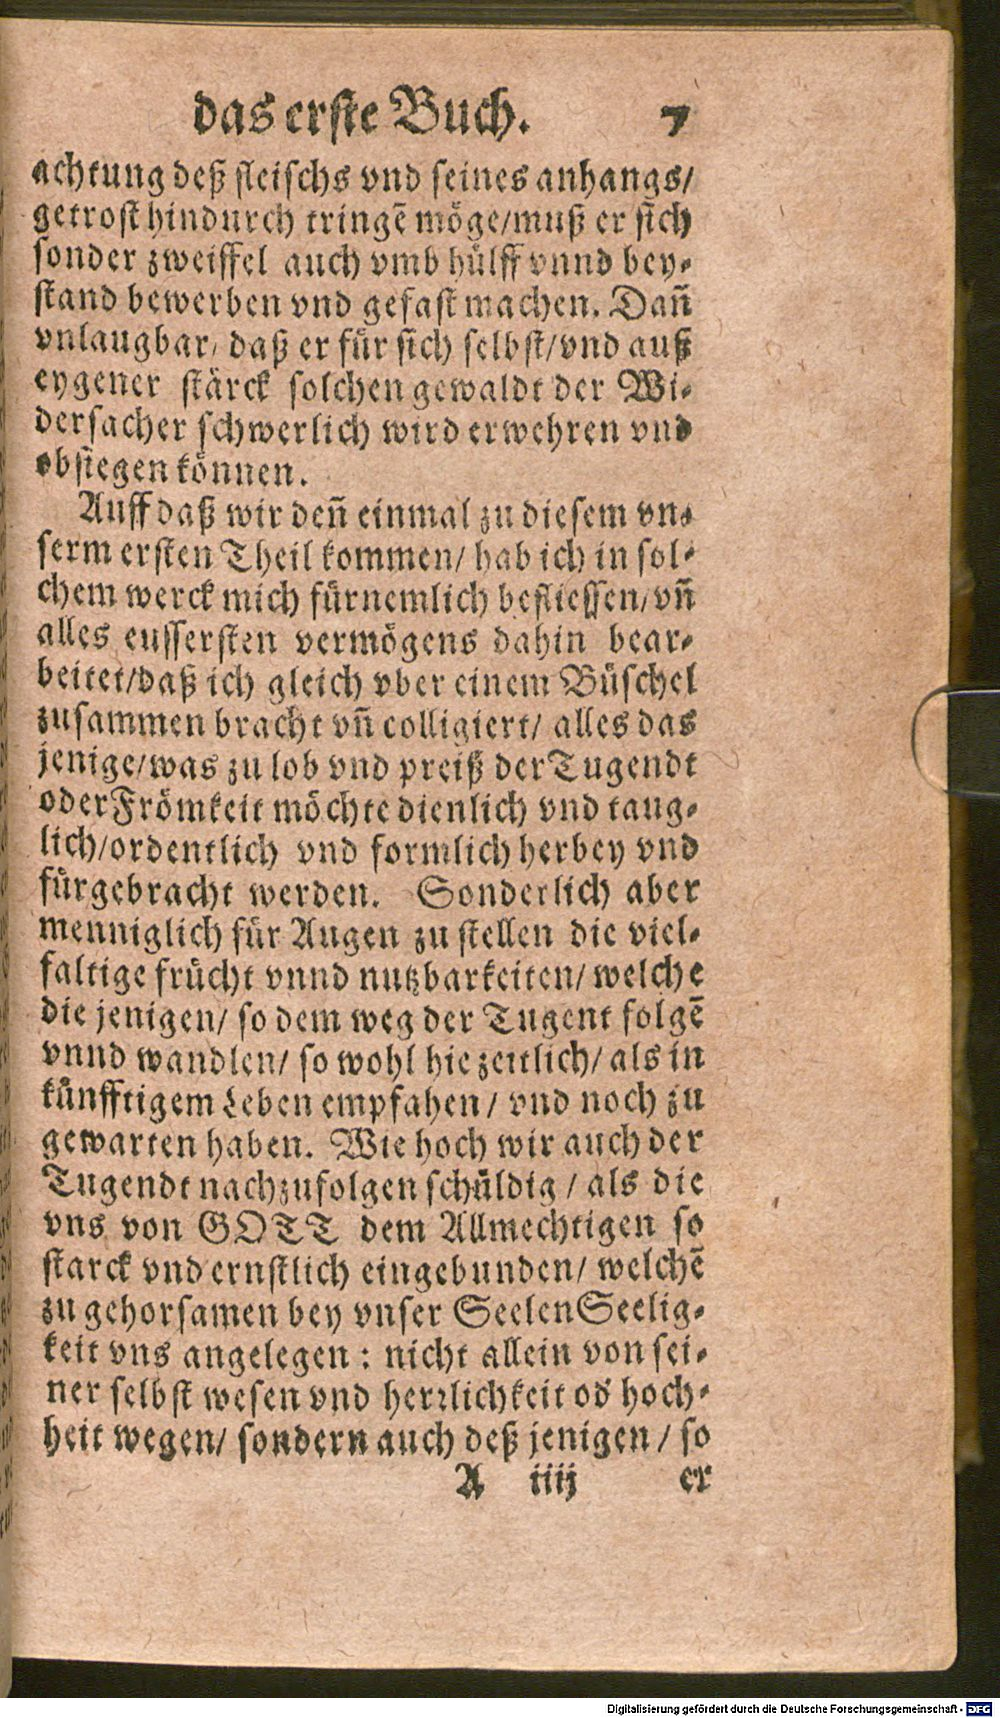 das erste Buch. 7
achtung deß fleischs vnd seines anhangs/
getrost hindurch tringẽ möge/muß er sich
sonder zweiffel auch vmb hülff vnnd bey-
stand bewerben vnd gefast machen. Dañ
vnlaugbar/ daß er für sich selbst/vnd auß
eygener stärck solchen gewaldt der Wi-
dersacher schwerlich wird erwehren vnd
obsiegen können.
Auff daß wir deñ einmal zu diesem vn-
serm ersten Theil kommen/ hab ich in sol-
chem werck mich fürnemlich befliessen/vñ
alles eussersten vermögens dahin bear-
beitet/daß ich gleich vber einem Büschel
zusammen bracht vñ colligiert/ alles das
jenige/was zu lob vnd preiß der Tugendt
oder Frömkeit möchte dienlich vnd taug-
lich/ordentlich vnd formlich herbey vnd
fürgebracht werden. Sonderlich aber
menniglich für Augen zu stellen die viel-
faltige frücht vnnd nutzbarkeiten/ welche
die jenigen/ so dem weg der Tugent folgẽ
vnnd wandlen/ so wohl hie zeitlich/ als in
künfftigem Leben empfahen/ vnd noch zu
gewarten haben. Wie hoch wir auch der
Tugendt nachzufolgen schüldig / als die
vns von GOTT dem Allmechtigen so
starck vnd ernstlich eingebunden/ welchẽ
zu gehorsamen bey vnser Seelen Seelig-
keit vns angelegen : nicht allein von sei-
ner selbst wesen vnd herꝛlichkeit od hoch-
heit wegen/ sondern auch deß jenigen / so
A iiij er
Digitalisierung gefördert durch die Deutsche Forschungsgemeinschaft - DFG